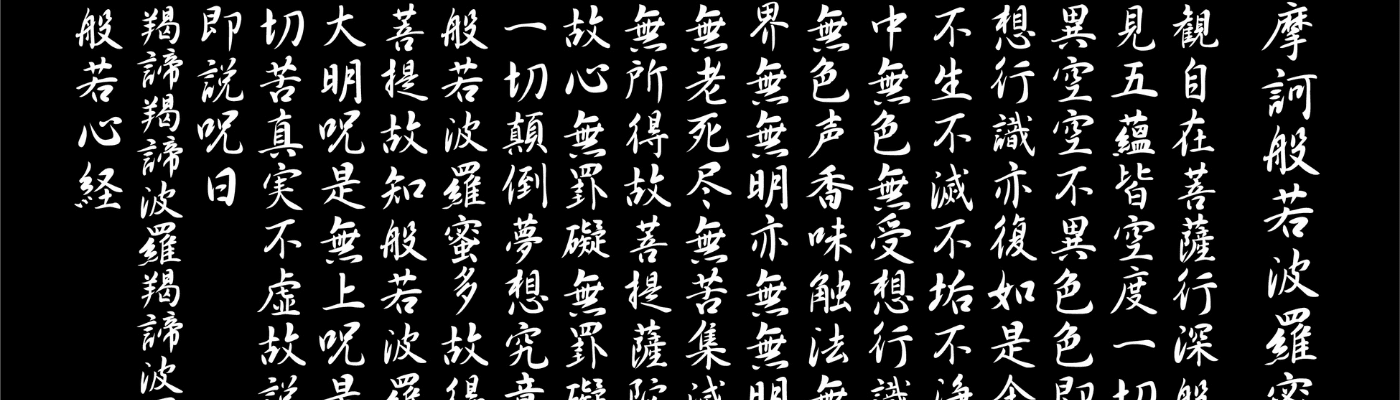 摩訶般若波羅蜜
観自在菩薩行深般
見五蘊皆空度一切
異空空不異色色即
想行識亦復如是舎
不生不滅不垢不浄
中無色無受想行識
無色声香味触法無
界無無明亦無無明
無老死尽無苦集滅
無所得故菩提薩
故心無罫礙無罫礙
一切顛倒夢想究竟
般若波羅蜜多故得
菩提故知般若波羅
大明呪是無上呪是
切苦真実不虚故説
即説呪曰
羯諦羯諦波羅羯諦波
般若心経